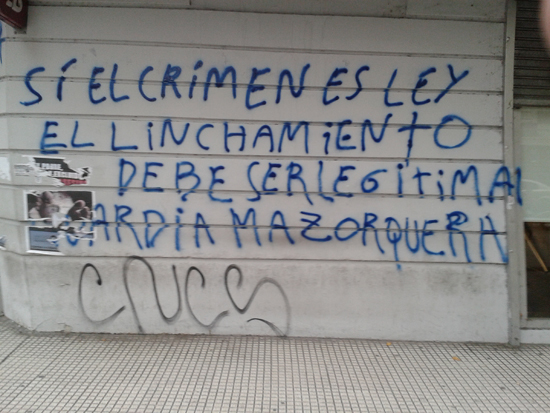 SÍ EL CRIMEN ES LEY
EL LINCHAMIENTO
DEBE SER LEGITIMA!
GUARDIA MAZORQUERA